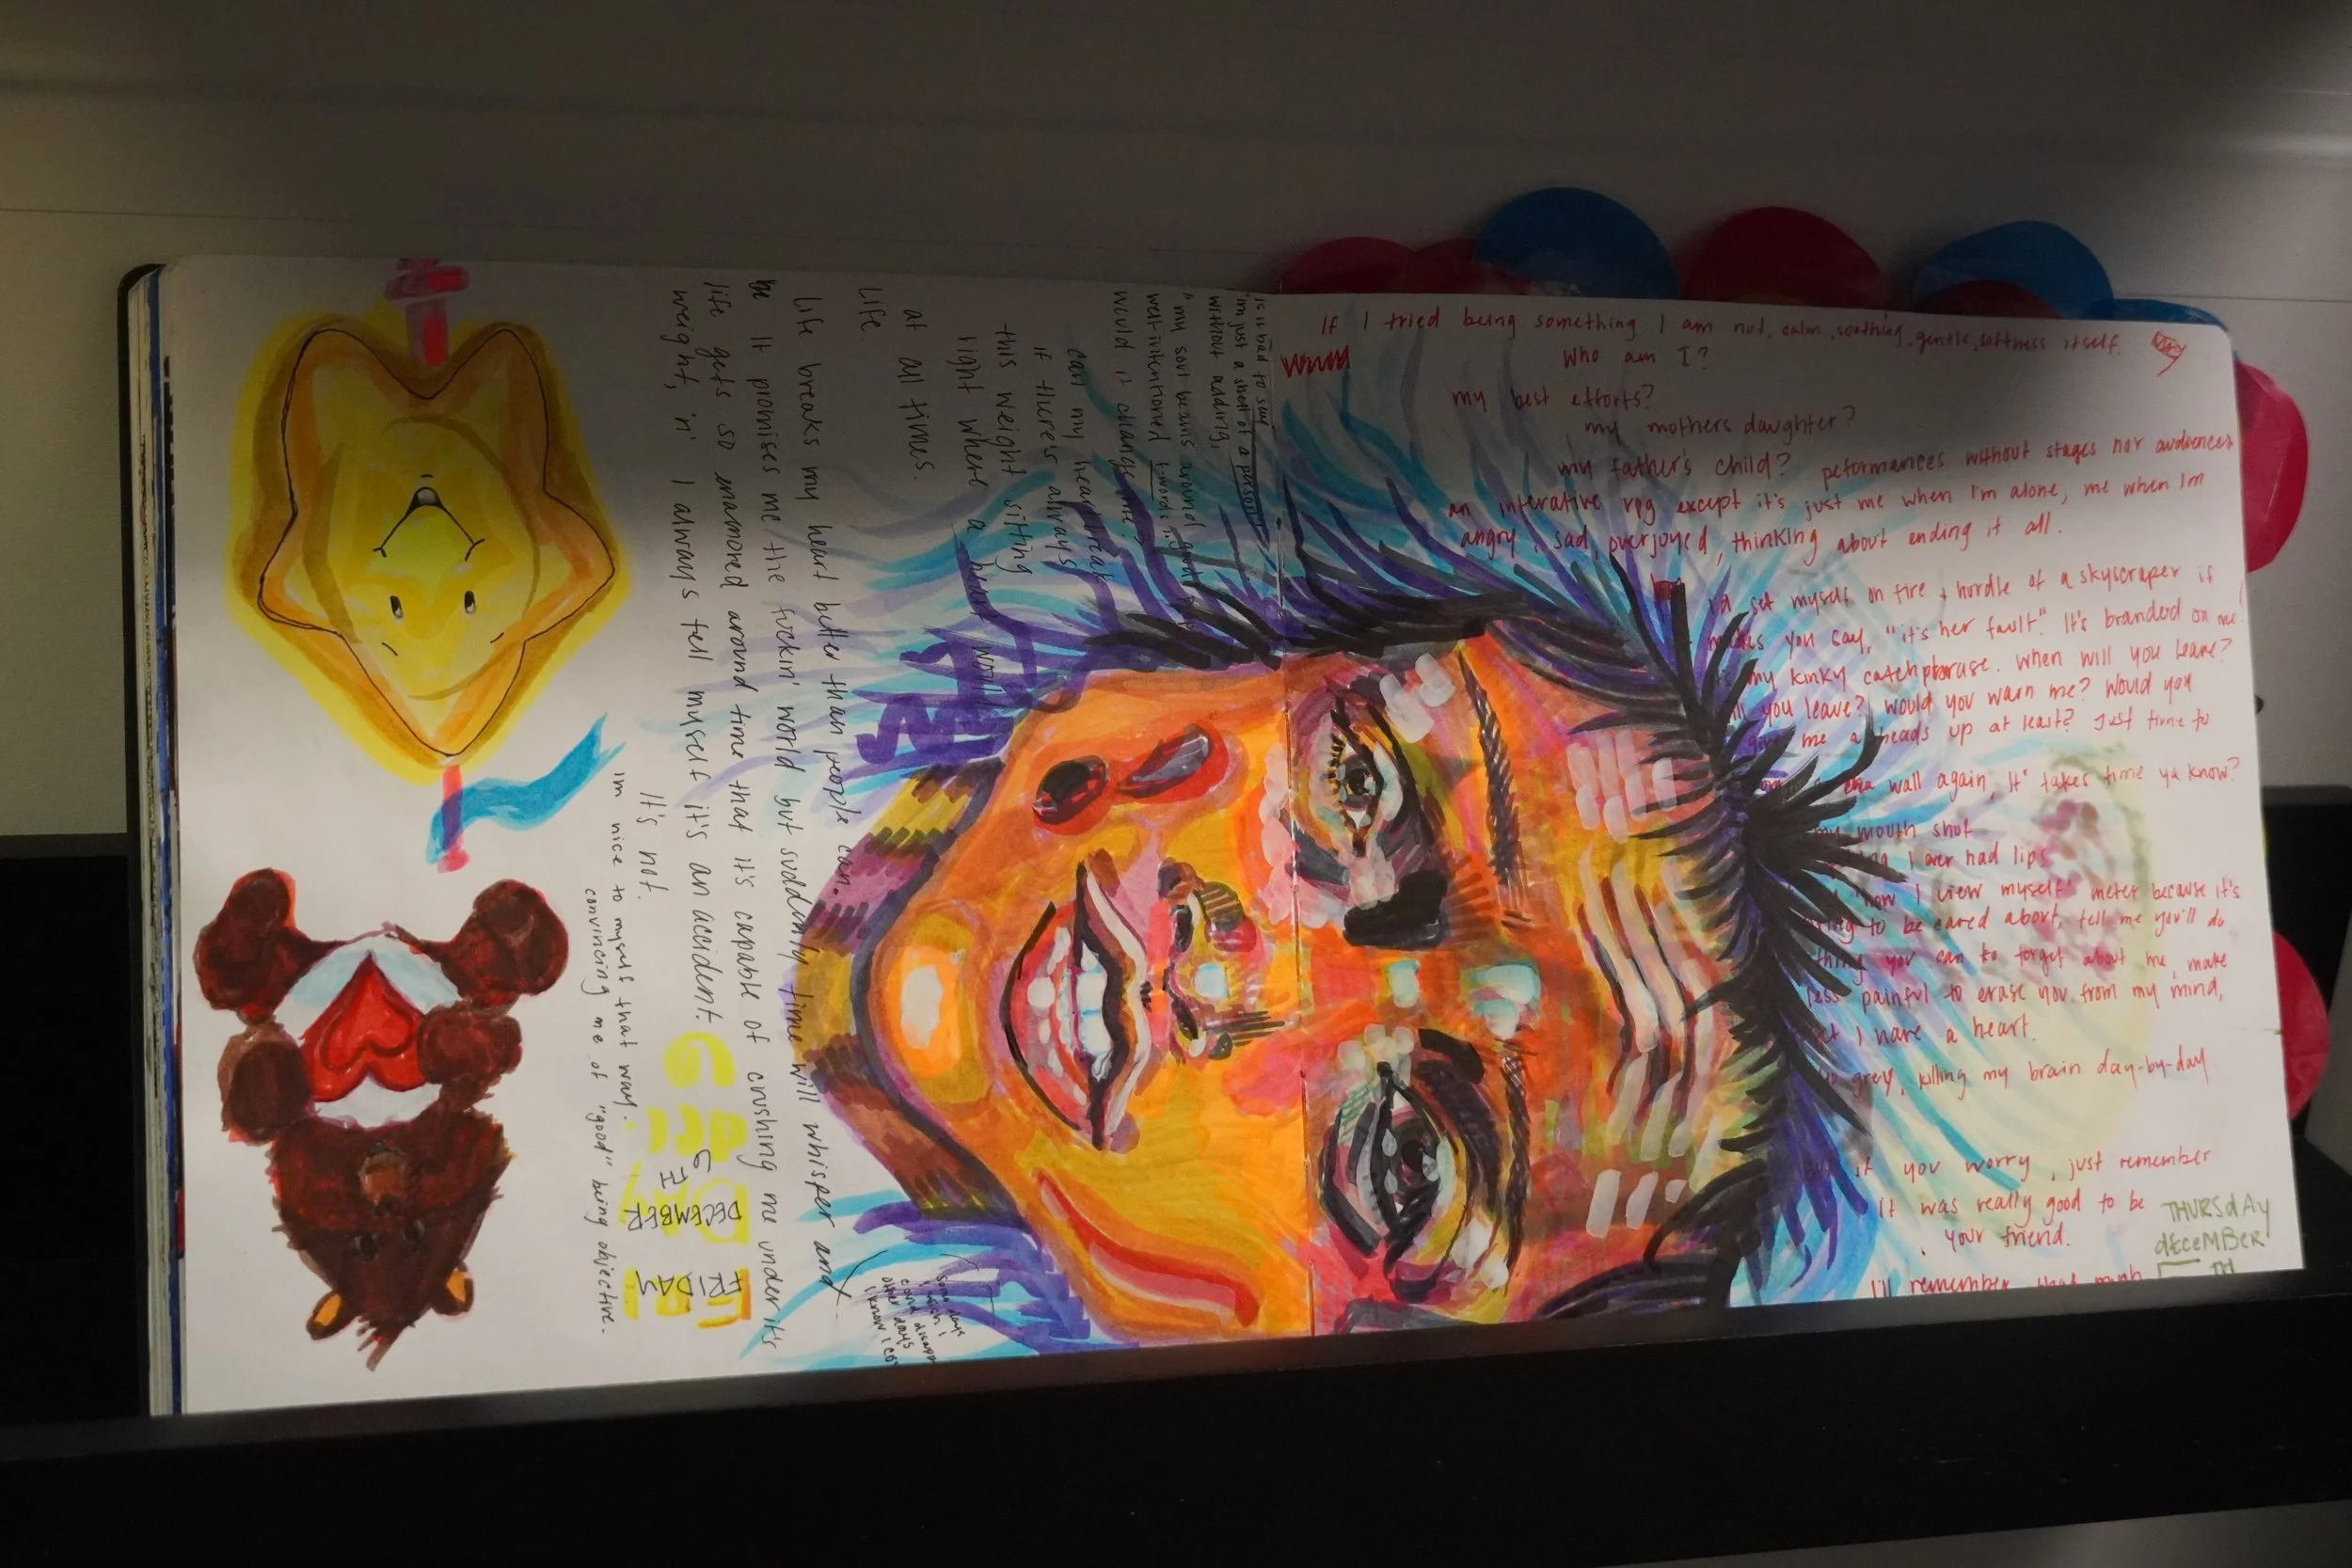 If I tried being something I am not, calm, soothing, gentle, softness itself.
Who am I?
my best efforts?
my mothers daughter?
my father's child? peformances without stages nor audiences
an interative rpg except it's just me when I'm alone, me when I'm
angry, sad, overjoyed, thinking about ending it all.
I'd set myself on fire + hurdle of a skyscraper if
makes you say, "it's her fault." It's branded on me!
my kinky catchphrase. When will you leave?
you leave? would you warn me? Would you
give me a heads up at least? Just time to
wall again, it takes time ya know?
my mouth shut
I ever had lips
how I view myself meter because it's
to be cared about, tell me you'll do
you can to forget about me, make
less painful to erase you from my mind,
I have a heart.
grey, killing my brain day-by-day
if you worry, just remember
it was really good to be
your friend.
I'll remember that much
THURSDAY
DECEMBER
TH
is it bad to say
"im just a shell of a person"
without adding,
"my soul beams around
well-intentioned
would it change me?
can my heartbreak
if theres always
this weight sitting
right where a heart would
at all times.
Life.
Life breaks my heart better than people can.
be It promises me the fuckin' world but suddenly time will whisper and
life gets so enamored around time that it's capable of crushing me under it's
weight, 'n' I always tell myself it's an accident.
It's not.
im nice to myself that way.
convincing me of "good" being objective.
some days
i wish i
could disapp
other days
I know I
FRIDAY
DECEMBER